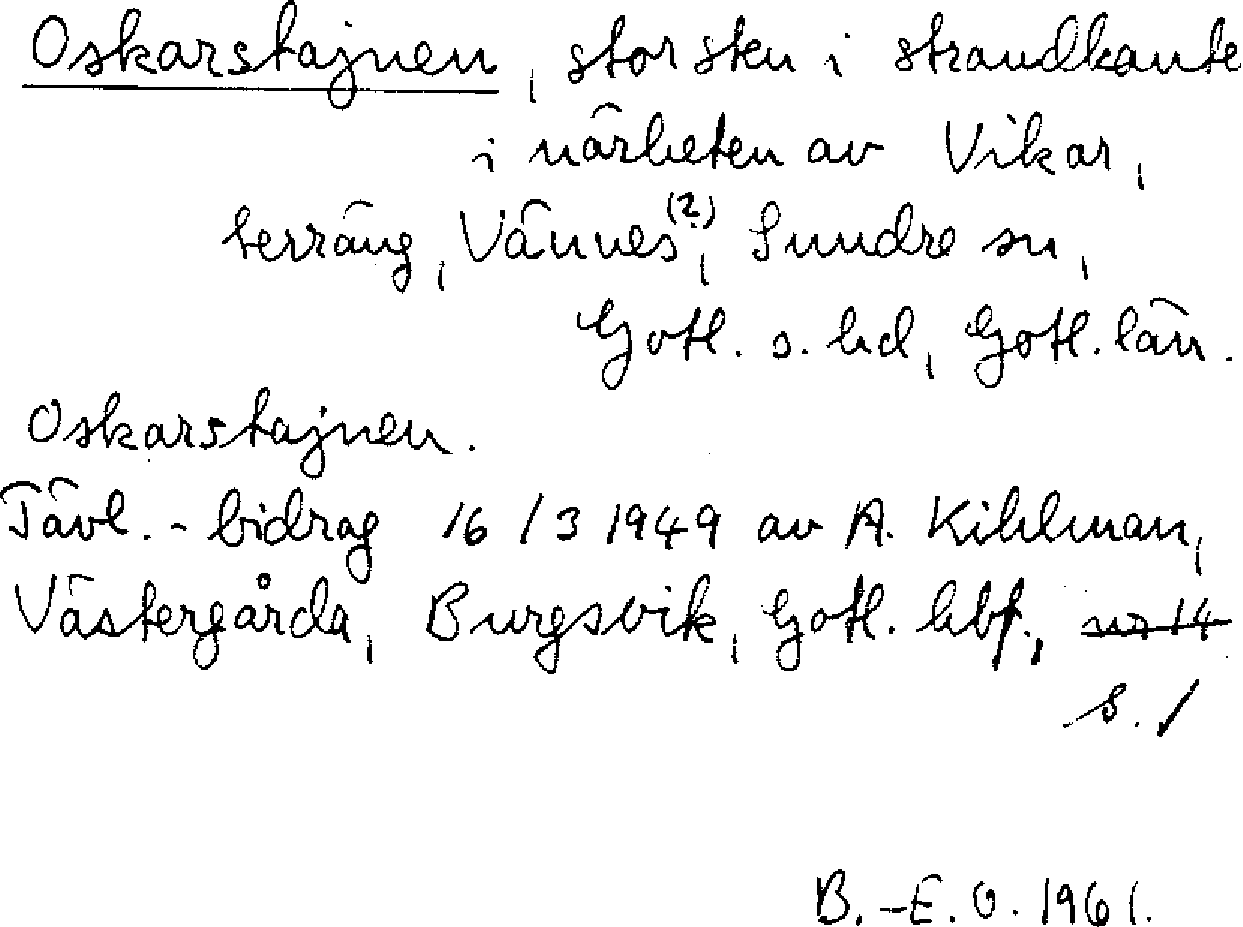 Oskarstajnen, stor sten i strandkante
i närheten av Vikar,
terräng, Vännes(?), Sundre sn,
Gotl. s. hd, Gotl. län.
Oskarstajnen.
Tävl.-bidrag 16/3 1949 av A. Kihlman,
Västergårda, Burgsvik, Gotl. hbf., nr 14
s. 1
B.-E. O. 1961.